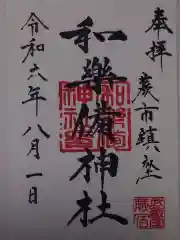 奉拝
蕨市鎮座
和樂備神社
令和六年八月一日